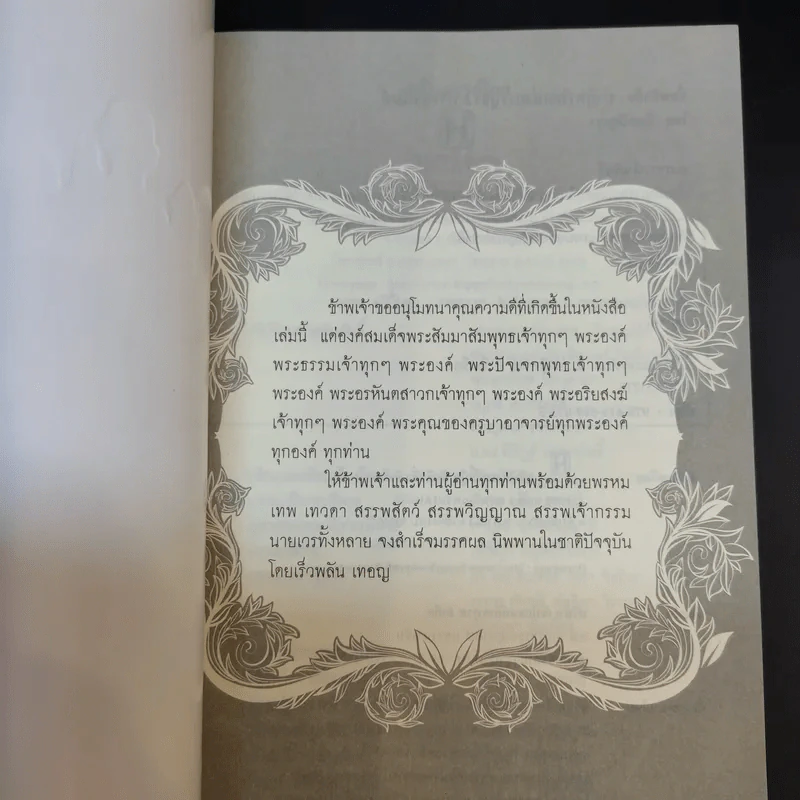 ข้าพเจ้าขออนุโมทนาคุณความดีที่เกิดขึ้นในหนังสือ
เล่มนี้ แด่องค์สมเด็จพระสัมมาสัมพุทธเจ้าทุกๆ พระองค์
พระธรรมเจ้าทุกๆ พระองค์ พระปัจเจกพุทธเจ้าทุกๆ
พระองค์ พระอรหันตสาวกเจ้าทุกๆ พระองค์ พระอริยสงฆ์
เจ้าทุกๆ พระองค์ พระคุณของครูบาอาจารย์ทุกพระองค์
ทุกองค์ ทุกท่าน
ให้ข้าพเจ้าและท่านผู้อ่านทุกท่านพร้อมด้วยพรหม
เทพ เทวดา สรรพสัตว์ สรรพวิญญาณ สรรพเจ้ากรรม
นายเวรทั้งหลาย จงสำเร็จมรรคผล นิพพานในชาติปัจจุบัน
โดยเร็วพลัน เทอญ